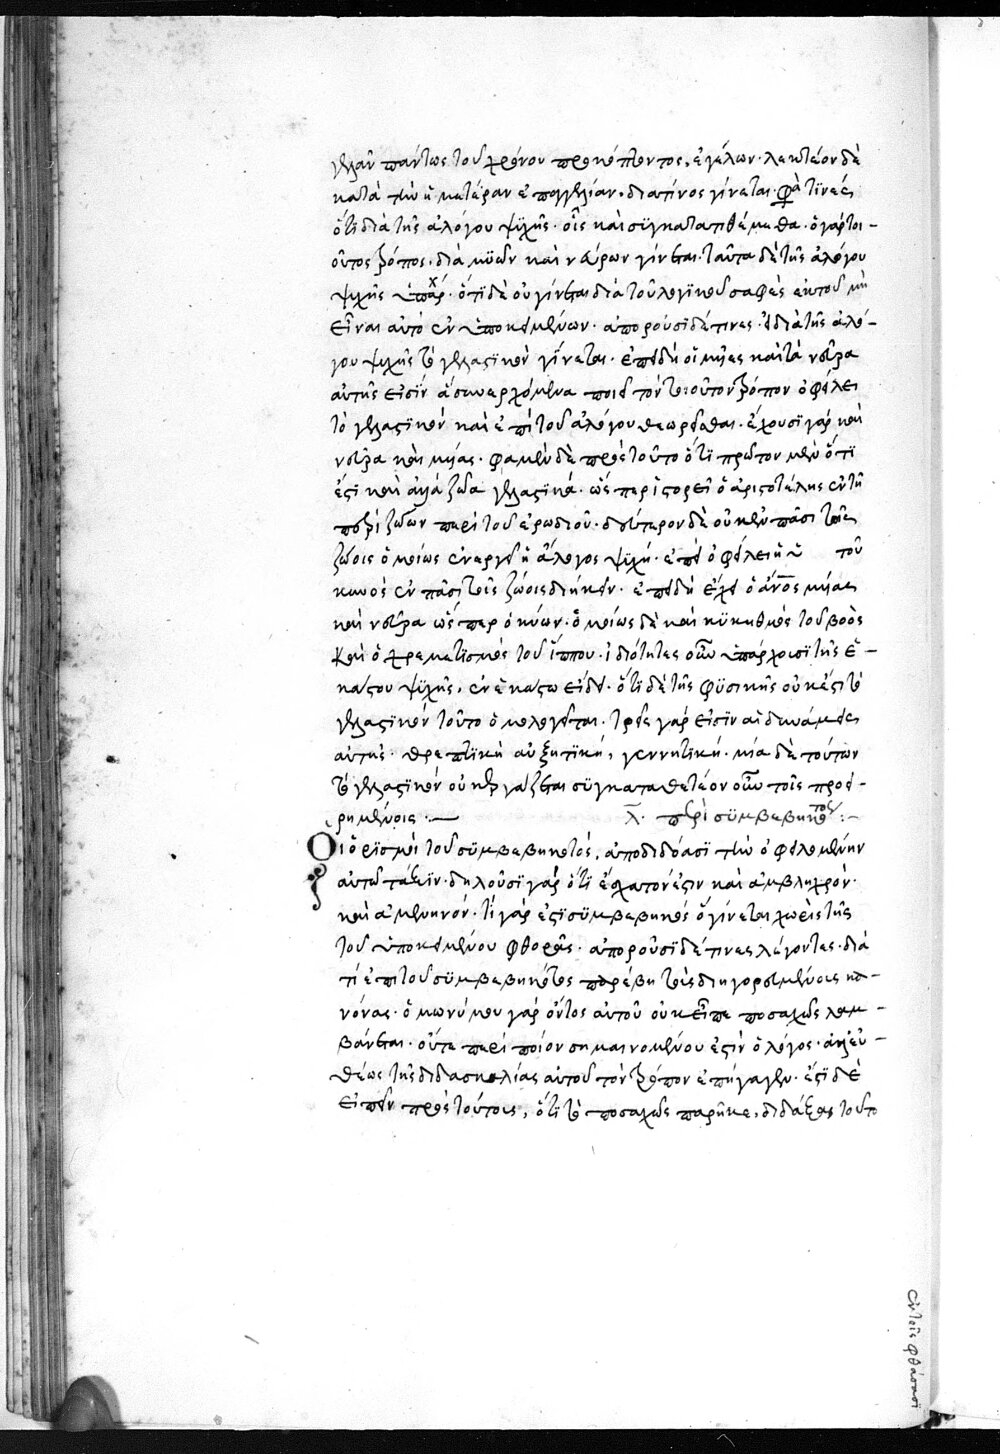 γελᾶν πάντως τοῦ χρόνου προκόπτοντος, ἐγέλων· λεκτέον δὲ
κατὰ τὴν ἡμετέραν ἐπαγγελίαν· διὰ τίνος γίνεται· φατινὲς
ὅτι διὰ τῆς ἀλόγου ψυχῆς· οἷς καὶ συγκατατιθέμεθα· ὁ γὰρ τοι-
οῦτος τρόπος, διὰ μυῶν καὶ νεύρων γίνεται· ταῦτα δὲ τῆς ἀλόγου
ψυχῆς ὑπάρχ· ὅτι δὲ οὐ γίνεται διὰ τοῦ λογικοῦ σαφὲς ἐκ τοῦ μὴ
εἶναι αὐτὸ ἐν ὑποκειμένων· ἀποροῦσι δέ τινες· εἰ διὰ τῆς ἀλό-
γου ψυχῆς τὸ γελαστικὸν γίνεται· ἐπειδὴ οἱ μύες καὶ τὰ νεῦρα
αὐτῆς εἰσὶν ἃ συνερχόμενα ποιεῖ τὸν τοιοῦτον τρόπον ὀφείλει
τὸ γελαστικὸν καὶ ἐπὶ τοῦ ἀλόγου θεωρεῖσθαι· ἔχουσι γὰρ καὶ
νεῦρα καὶ μύας· φαμὲν δὲ πρὸς τοῦτο ὅτι πρῶτον μὲν ὅτι
ἐστὶ καὶ ἄλλα ζῶα γελαστικά· ὥσπερ ἱστορεῖ ὁ ἀριστοτέλης ἐν τῇ
περὶ ζώων περὶ τοῦ ἐρωδιοῦ· δεύτερον δὲ οὐκ ἐν πᾶσι τοῖς
ζώοις ὁμοίως ἐνεργεῖ ἡ ἄλογος ψυχή· ἐπεὶ ὀφείλει ἡ ὑ τοῦ
κυνὸς ἐν πᾶσι τοῖς ζώοις διήκειν· ἐπειδὴ ἔχει ὁ ἄνος μύας
καὶ νεῦρα ὥσπερ ὁ κύων· ὁμοίως δὲ καὶ κυκηθμὸς τοῦ βοὸς
καὶ ὁ χρεματισμὸς τοῦ ἵππου· ἰδιότητες οὖν ὑπάρχουσι τῆς ἑ-
κάστου ψυχῆς, ἐν ἑκάστω εἴδει· ὅτι δὲ τῆς φυσικῆς οὐκ ἔστι τὸ
γελαστικὸν τοῦτο ὁμολογεῖται· τρεῖς γάρ εἰσιν αἱ δυνάμεις
αὐτῆς· θρεπτικὴ αὐξητική, γεννητική· μία δὲ τούτων
τὸ γελαστικὸν οὐκ ἐργάζεται συγκαταθετέον οὖν τοῖς προει-
ρημένοις· — λ· περὶ συμβεβηκότος:—
Οἱ ὁρισμοὶ τοῦ συμβεβηκότος, ἀποδιδόασι τὴν ὀφειλομένην
αὐτῶ τάξιν· δηλοῦσι γὰρ ὅτι ἔσχατόν ἐστιν καὶ ἀμβληχρόν·
καὶ ἀμενηνόν· τί γάρ ἐστι συμβεβηκός ὃ γίνεται χωρὶς τῆς
τοῦ ὑποκειμένου φθορᾶς· ἀποροῦσι δέ τινες λέγοντες· διὰ
τί ἐπὶ τοῦ συμβεβηκότος παρέβη τοὺς διηγορευμένους κα-
νόνας· ὁμωνύμου γὰρ ὄντος αὐτοῦ οὐκ εἶπε ποσαχῶς λαμ-
βάνεται· οὔτε περὶ ποίου σημαινομένου ἐστὶν ὁ λόγος· ἀλλ' εὐ-
θέως τῆς διδασκαλίας αὐτοῦ τὸν τρόπον ἐπήγαγεν· ἔστι δὲ
εἰπεῖν πρὸς τούτοις, ὅτι τὸ ποσαχῶς παρῆκε, διδάξας τοῦτο
ἐν τοῖς φθάσασι